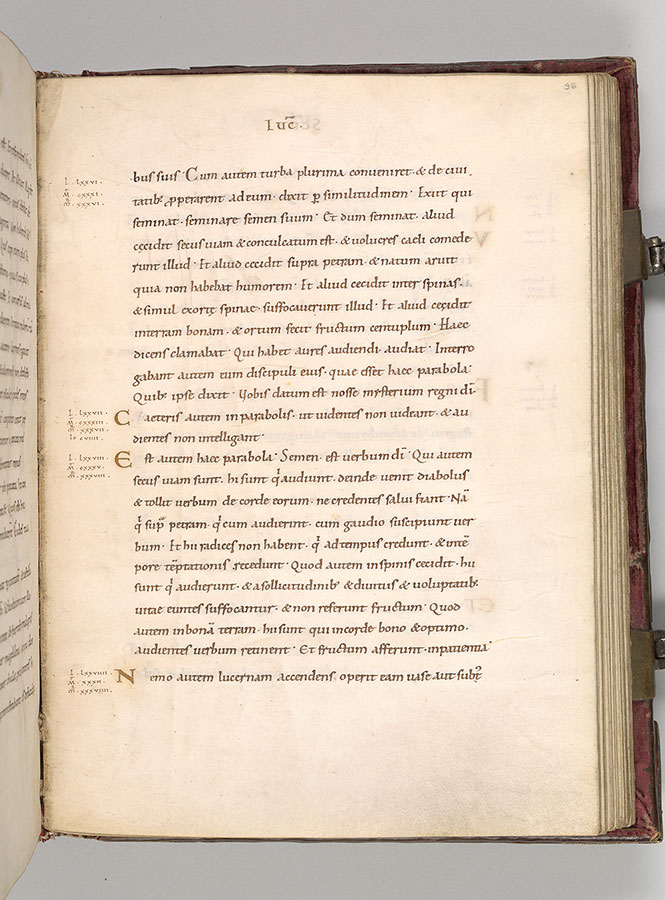 96
Luc̄.
bus suis· Cum autem turba plurima conveniret· & de civi
tatib; ꝓperarent ad eum· dixit ꝑ similitudinem· Exiit qui
seminat· seminare semen suum· Et dum seminat· aliud
cecidit secus viam & conculcatum est· & volucres caeli comede
runt illud· Et aliud cecidit supra petram· & natum aruit
quia non habebat humorem· Et aliud cecidit inter spinas·
& simul exortę spinae suffocaverunt illud· Et aliud cecidit
in terram bonam· & ortum fecit fructum centuplum· Haec
dicens clamabat· Qui habet aures audiendi audiat· Interro
gabant autem eum discipuli eius· quae esset haec parabola·
Quib; ipse dixit· Vobis datum est nosse mysterium regni dī·
L· LXXVI·
M̄· CXXXI·
M̄· XXXVI·
Caeteris autem in parabolis· ut videntes non videant· & au
dientes non intelligant·
L· LXXVII·
M̄· CXXXIII·
M̄· XXXVII·
IO CVIII·
Est autem haec parabola· Semen· est verbum dī· Qui autem
secus viam sunt· hi sunt q̇ audiunt· deinde venit diabolus
& tollit verbum de corde eorum· ne credentes salvi fiant· Nā
q̇ sup̄ petram· q̇ cum audierint· cum gaudio suscipiunt ver
bum· Et hi radices non habent· q̇ ad tempus credunt· & in tē
pore tēptationis recedunt· Quod autem in spinis cecidit· hi
sunt q̇ audierunt· & a sollicitudinib; & divitiis & voluptatib;
vitae euntes suffocantur· & non referunt fructum· Quod
autem in bonā terram· hi sunt qui in corde bono & optimo·
audientes verbum retinent· Et fructum afferunt· in patientia·
L· LXXVIII·
M̄· CXXXV·
M̄· XXXVIII·
Nemo autem lucernam accendens· operit eam vase aut subt̄
L· LXXVIIII·
M̄· XXXII·
M̄· XXXVIIII·